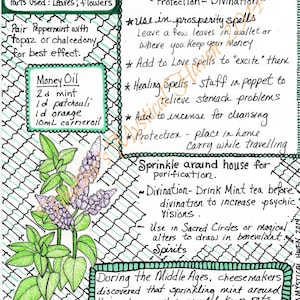 Parts Used: Leaves, flowers
Pair Peppermint with
topaz or chalcedony
for best effect.
Money Oil
2 d mint
1 d patchouli
1 d orange
10mL carrier oil
Protection - Divination
* Use in prosperity spells
Leave a few leaves in wallet or
where you keep your money
* Add to Love spells to "excite" them
* Healing Spells - stuff in poppet to
relieve stomach problems
* Add to incense for cleansing
Protection - place in home
carry while travelling
Sprinkle around house for
purification.
- Divination - Drink Mint tea before
divination to increase psychic
visions.
- Use in Sacred Circles or magical
alters to draw in benevolent
Spirits
During the Middle Ages, cheesemakers
discovered that sprinkling mint around